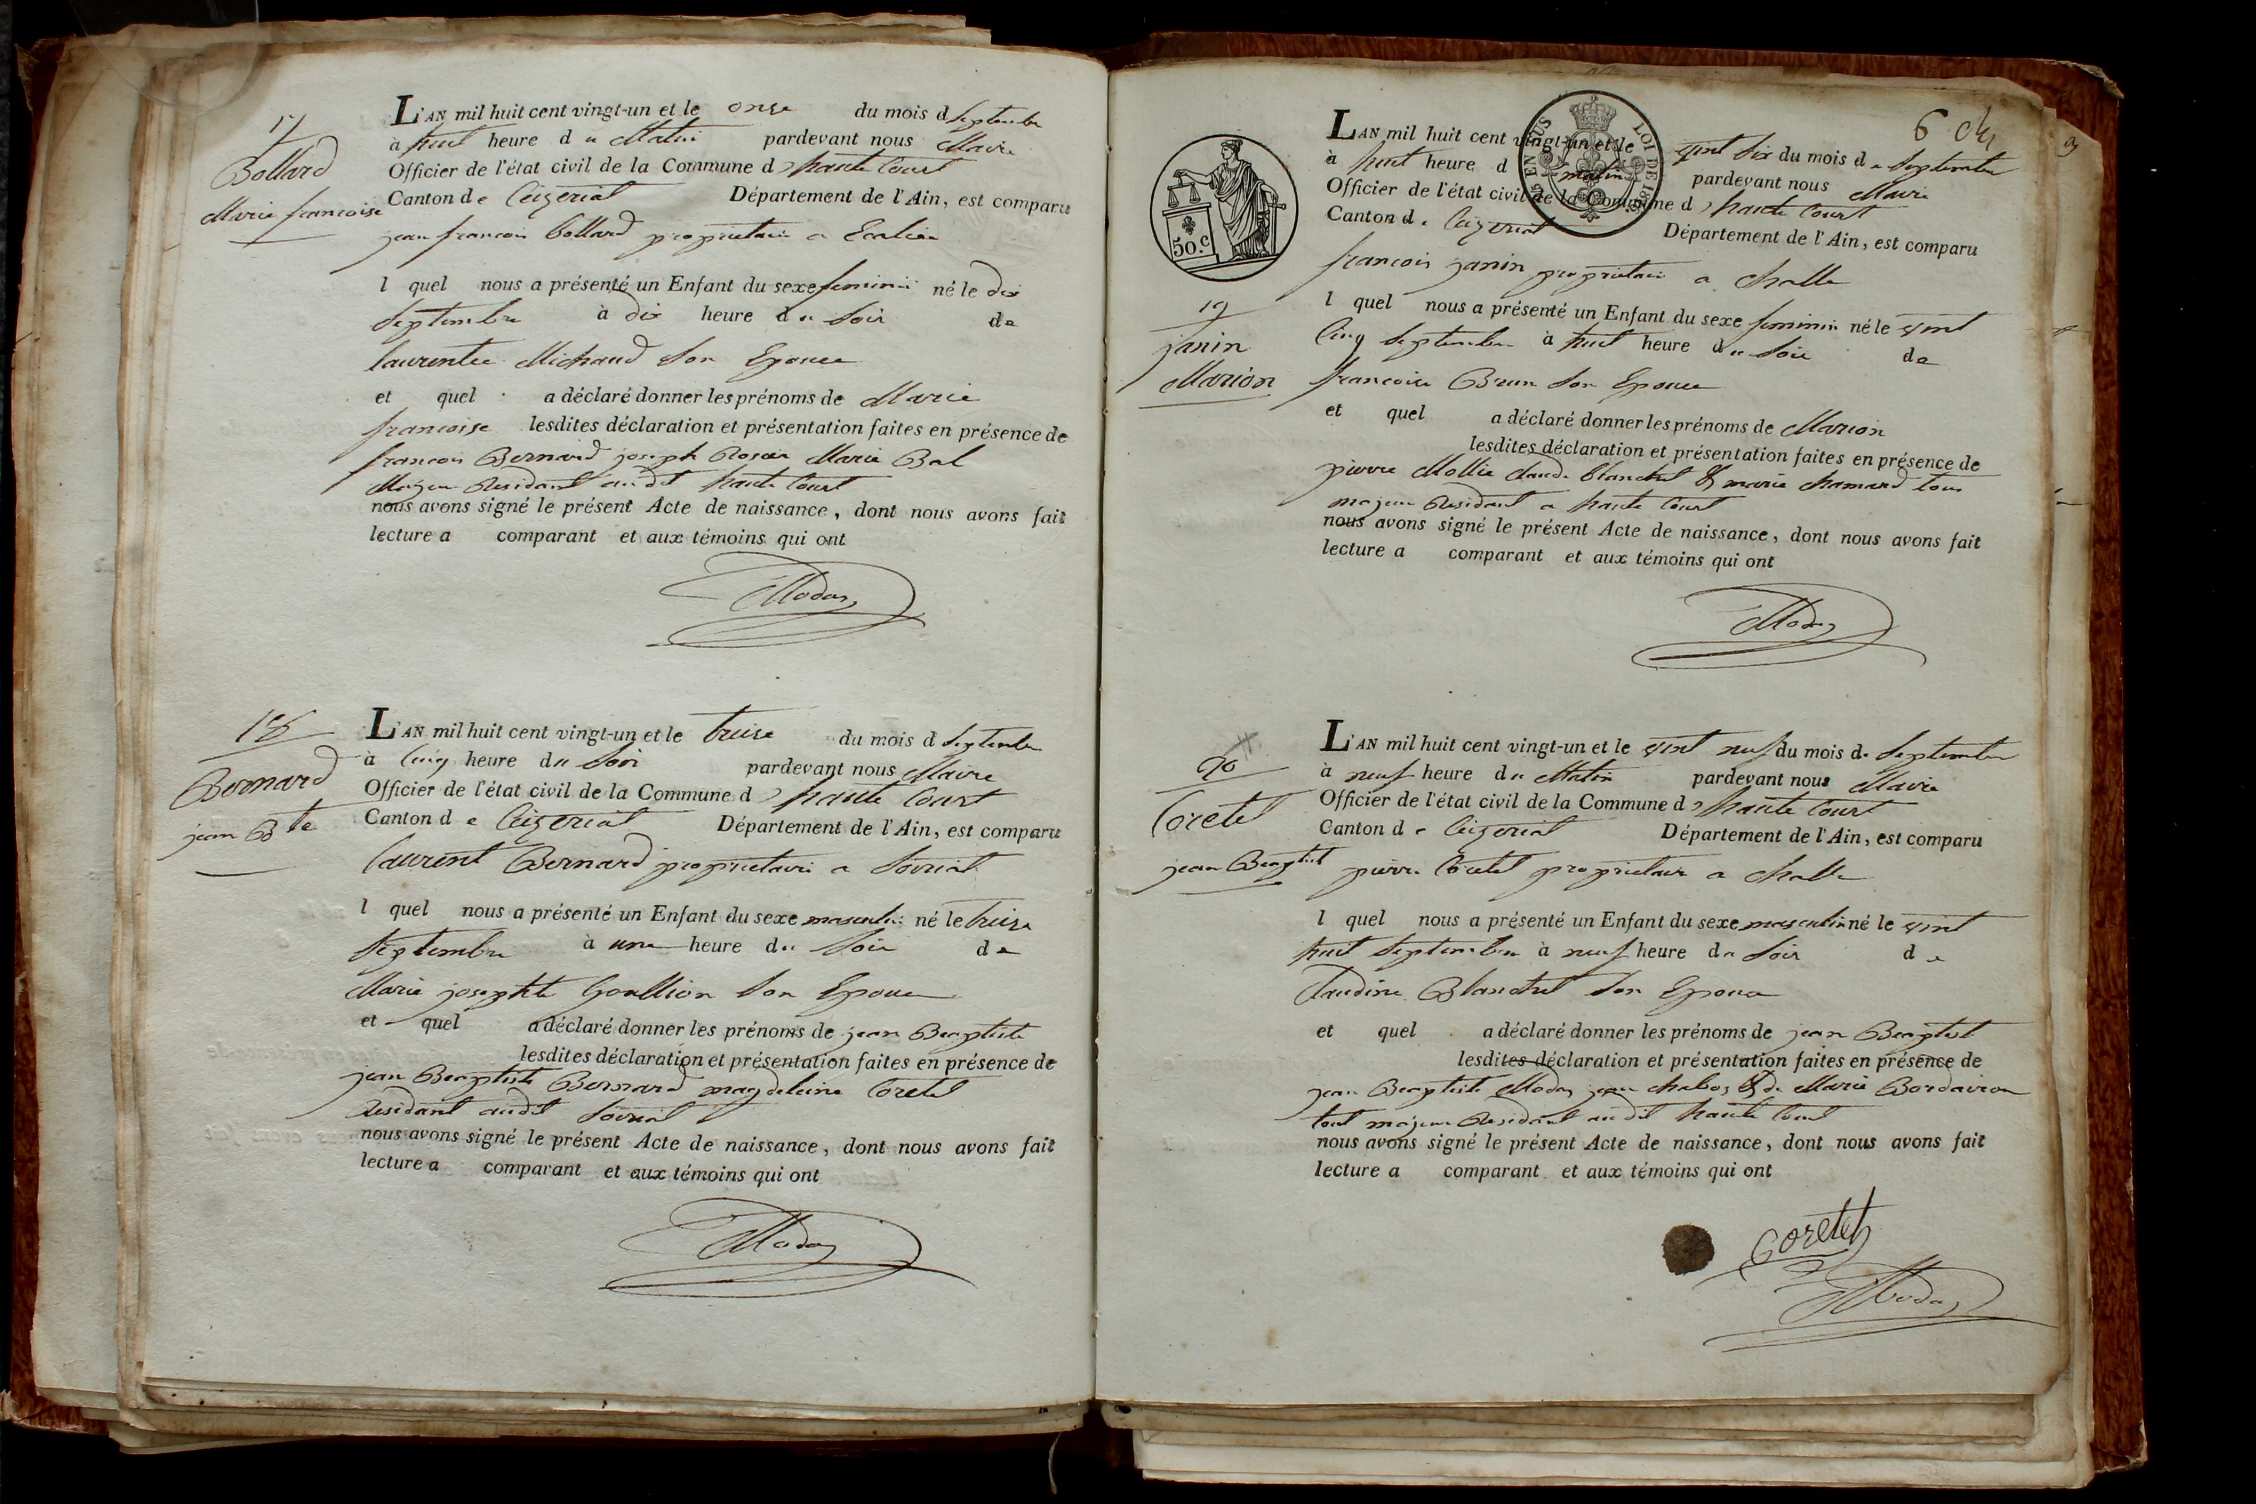 17
Bollard
Marie francoise
L'AN mil huit cent vingt-un et le onze du mois d septembre
à huit heure du Matin pardevant nous Maire
Officier de l'état civil de la Commune d haute Court
Canton de Ceizeriat Département de l'Ain, est comparu
jean francois bollard proprietaire a
l quel nous a présenté un Enfant du sexe feminin né le dix
septembre à dix heure du Soir de
laurentee Michaud Son Epouse
et quel a déclaré donner les prénoms de Marie
francoise lesdites déclaration et présentation faites en présence de
francois Bernard joseph Rosier Marie Bal
Majeur Residant audit haute Court
nous avons signé le présent Acte de naissance, dont nous avons fait
lecture a comparant et aux témoins qui ont
Modas
18
Bernard
jean Bte
L'AN mil huit cent vingt-un et le treise du mois d septembre
à Cinq heure du Soir pardevant nous Maire
Officier de l'état civil de la Commune d haute Court
Canton de Ceizeriat Département de l'Ain, est comparu
Laurent Bernard proprietaire a
l quel nous a présenté un Enfant du sexe masculin né le treise
septembre à une heure du Soir de
Marie josephte Son Epouse
et quel a déclaré donner les prénoms de jean Beaptiste
lesdites déclaration et présentation faites en présence de
jean Beaptiste Bernard magdeleine Coretet
Residant audit
nous avons signé le présent Acte de naissance, dont nous avons fait
lecture a comparant et aux témoins qui ont
Modas
6
50.c
EN SUS
LOI DE 18
19
janin
Marion
L'AN mil huit cent vingt-un et le vint Six du mois de Septembre
à huit heure d matin pardevant nous Maire
Officier de l'état civil de la Commune d haute Court
Canton de Ceizeriat Département de l'Ain, est comparu
francois janin proprietaire a challe
l quel nous a présenté un Enfant du sexe feminin né le vint
Cinq Septembre à huit heure du Soir de
francoise Brun Son Epouse
et quel a déclaré donner les prénoms de Marion
lesdites déclaration et présentation faites en présence de
pierre Mollie Claude blanchet & marie chamard tous
majeur Residant a haute Court
nous avons signé le présent Acte de naissance, dont nous avons fait
lecture a comparant et aux témoins qui ont
Modas
20
Coretet
jean Beaptist
L'AN mil huit cent vingt-un et le vint neuf du mois de Septembre
à neuf heure du Matin pardevant nous Maire
Officier de l'état civil de la Commune d haute Court
Canton de Ceizeriat Département de l'Ain, est comparu
pierre Coretet proprietaire a challe
l quel nous a présenté un Enfant du sexe masculin né le vint
huit Septembre à neuf heure du Soir de
Claudine Blanchet Son Epouse
et quel a déclaré donner les prénoms de jean Beaptist
lesdites déclaration et présentation faites en présence de
jean Beaptiste Modas jean & de Marie
tout majeur Residant audit haute Court
nous avons signé le présent Acte de naissance, dont nous avons fait
lecture a comparant et aux témoins qui ont
Coretet
Modas